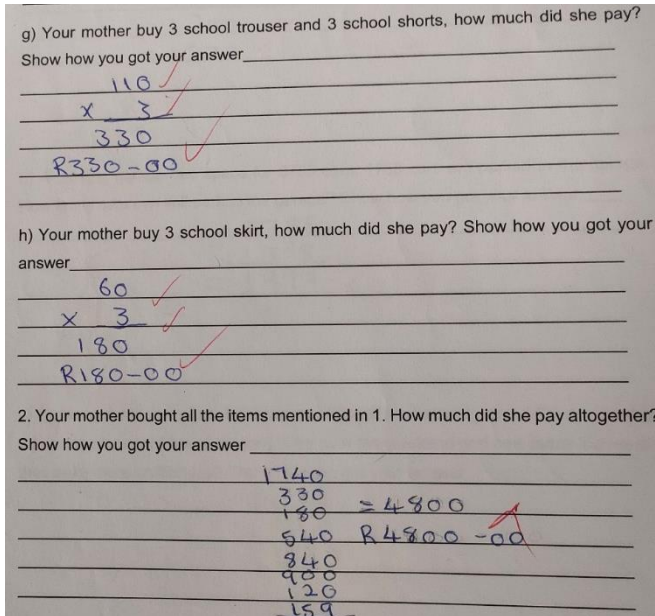 g) Your mother buy 3 school trouser and 3 school shorts, how much did she pay?
Show how you got your answer
110
x 3
330
R330-00
h) Your mother buy 3 school skirt, how much did she pay? Show how you got your
answer
60
x 3
180
R180-00
2. Your mother bought all the items mentioned in 1. How much did she pay altogether?
Show how you got your answer
1740
330
180 = 4800
540 R4800-00
840
900
120
159